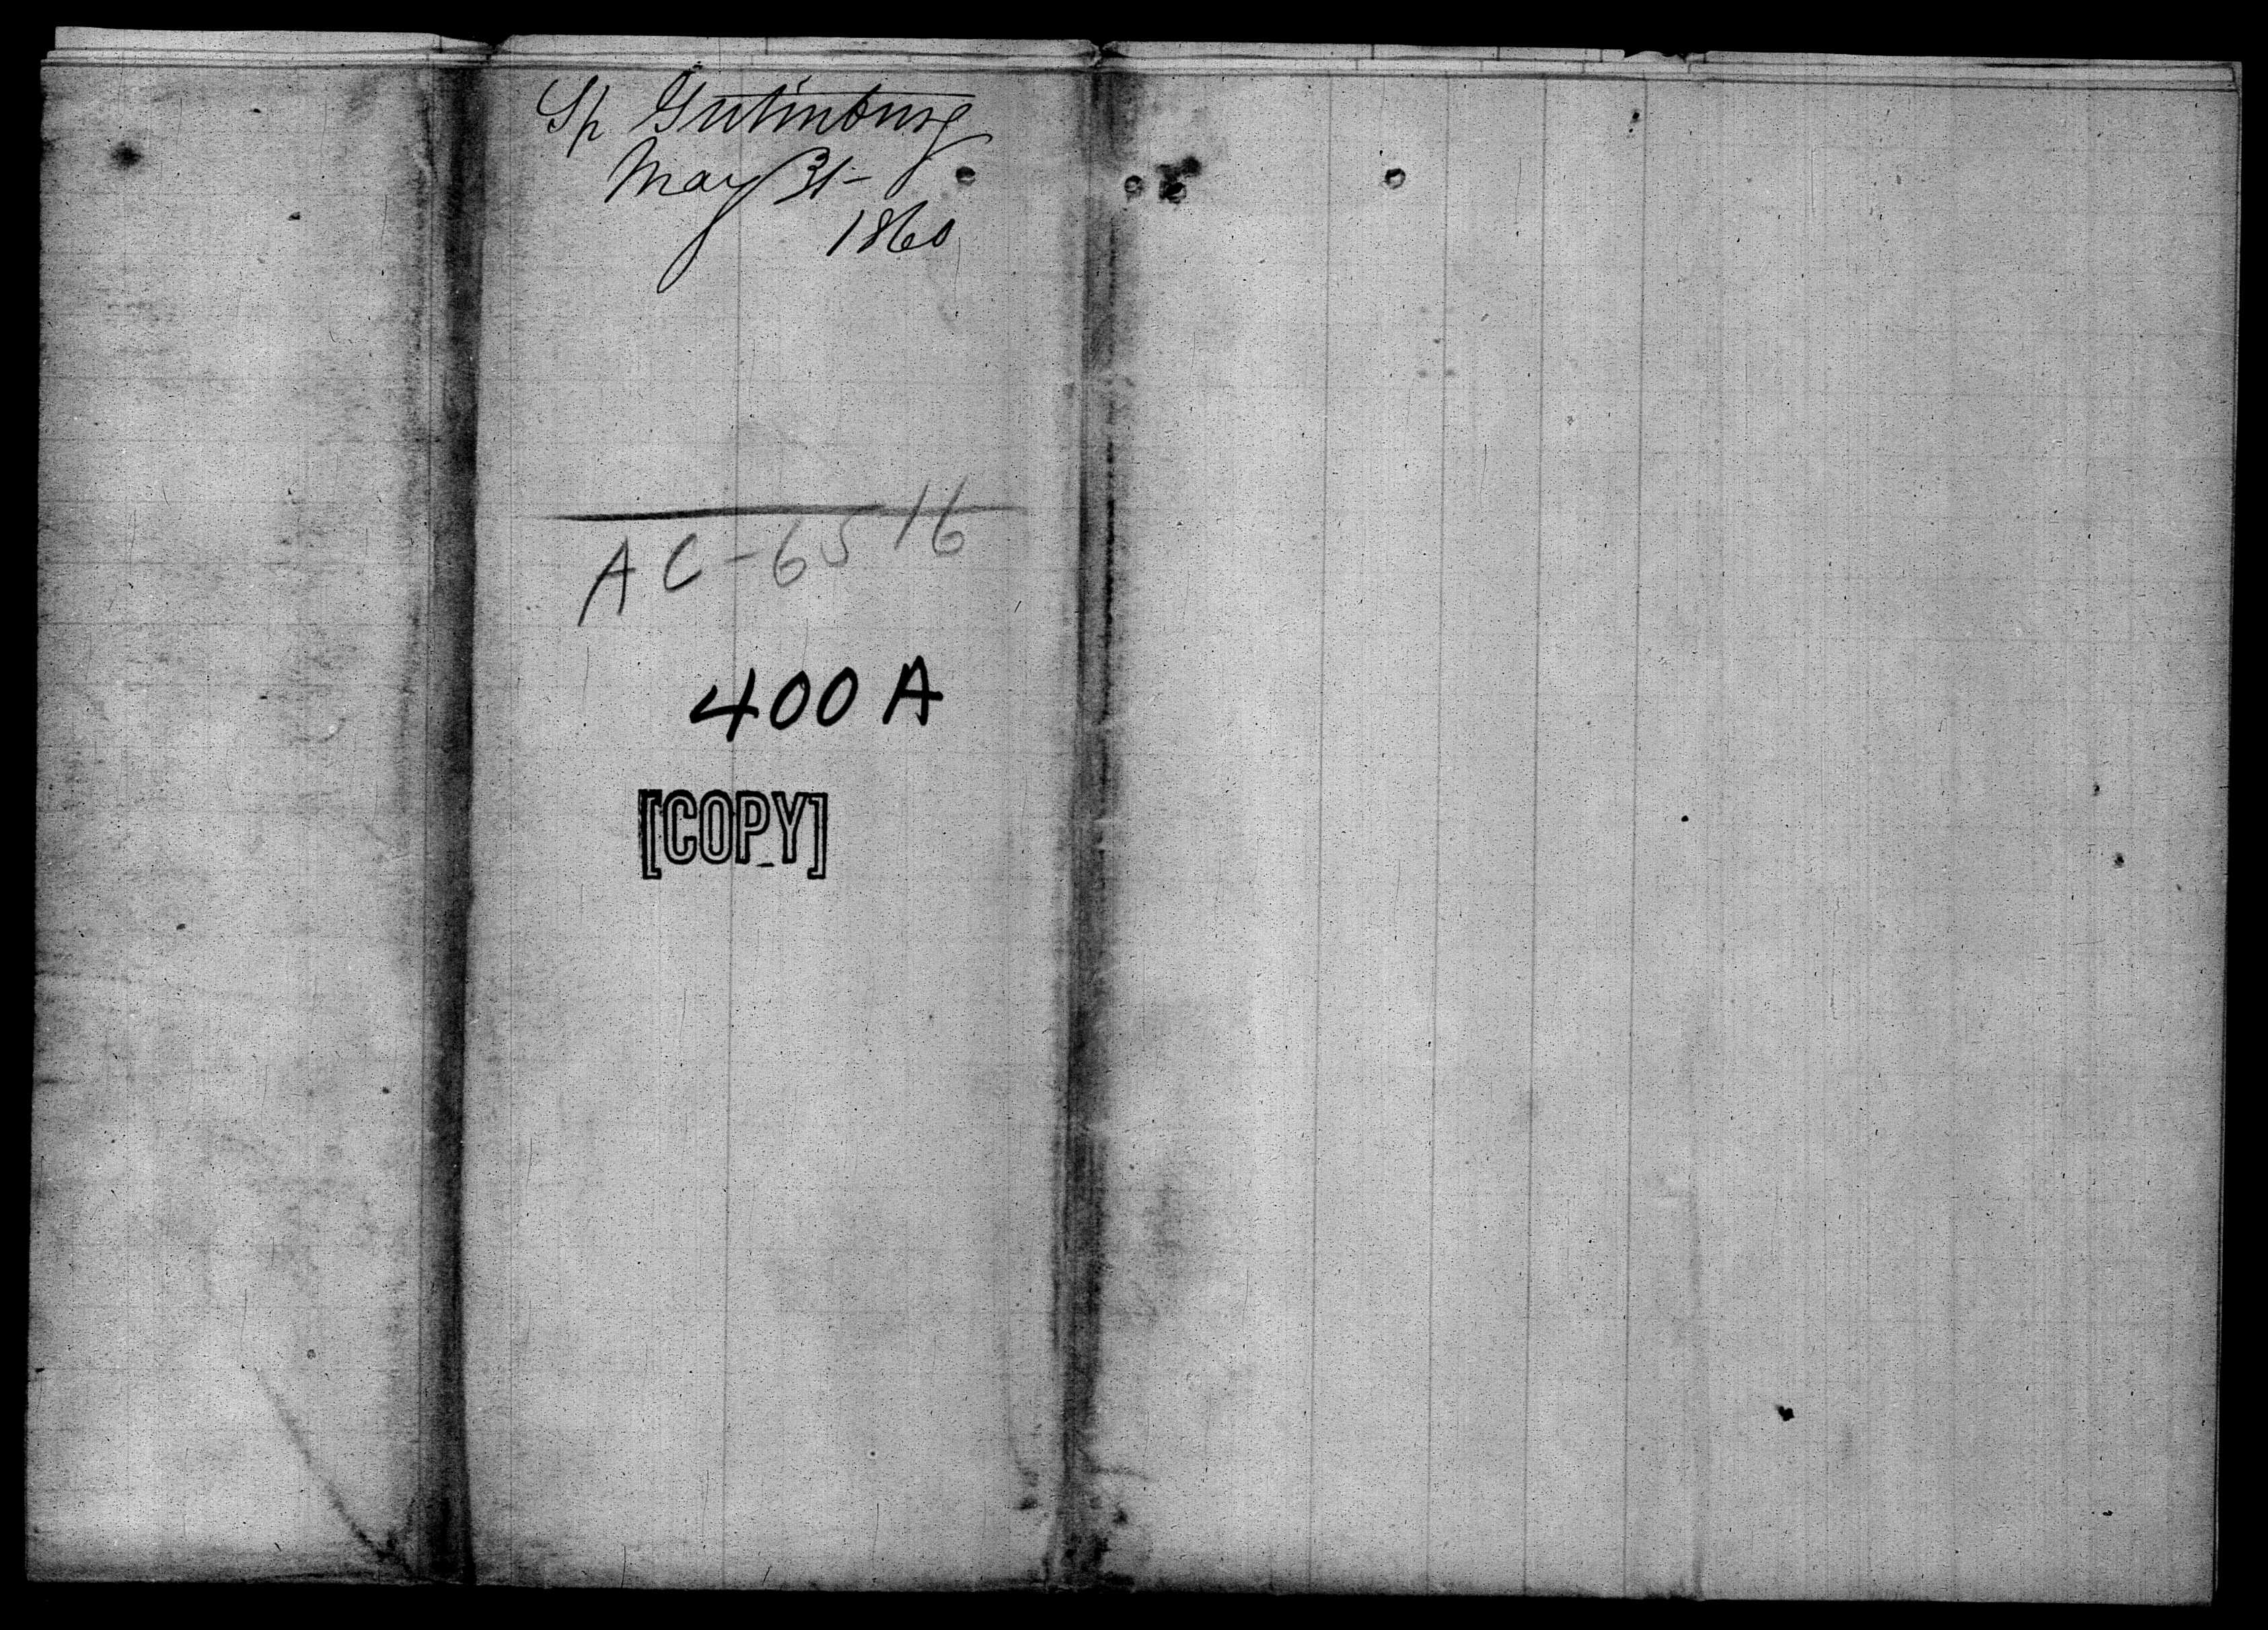 Sp Gutenburg
May 31-
1860
AC-6516
400 A
[COPY]